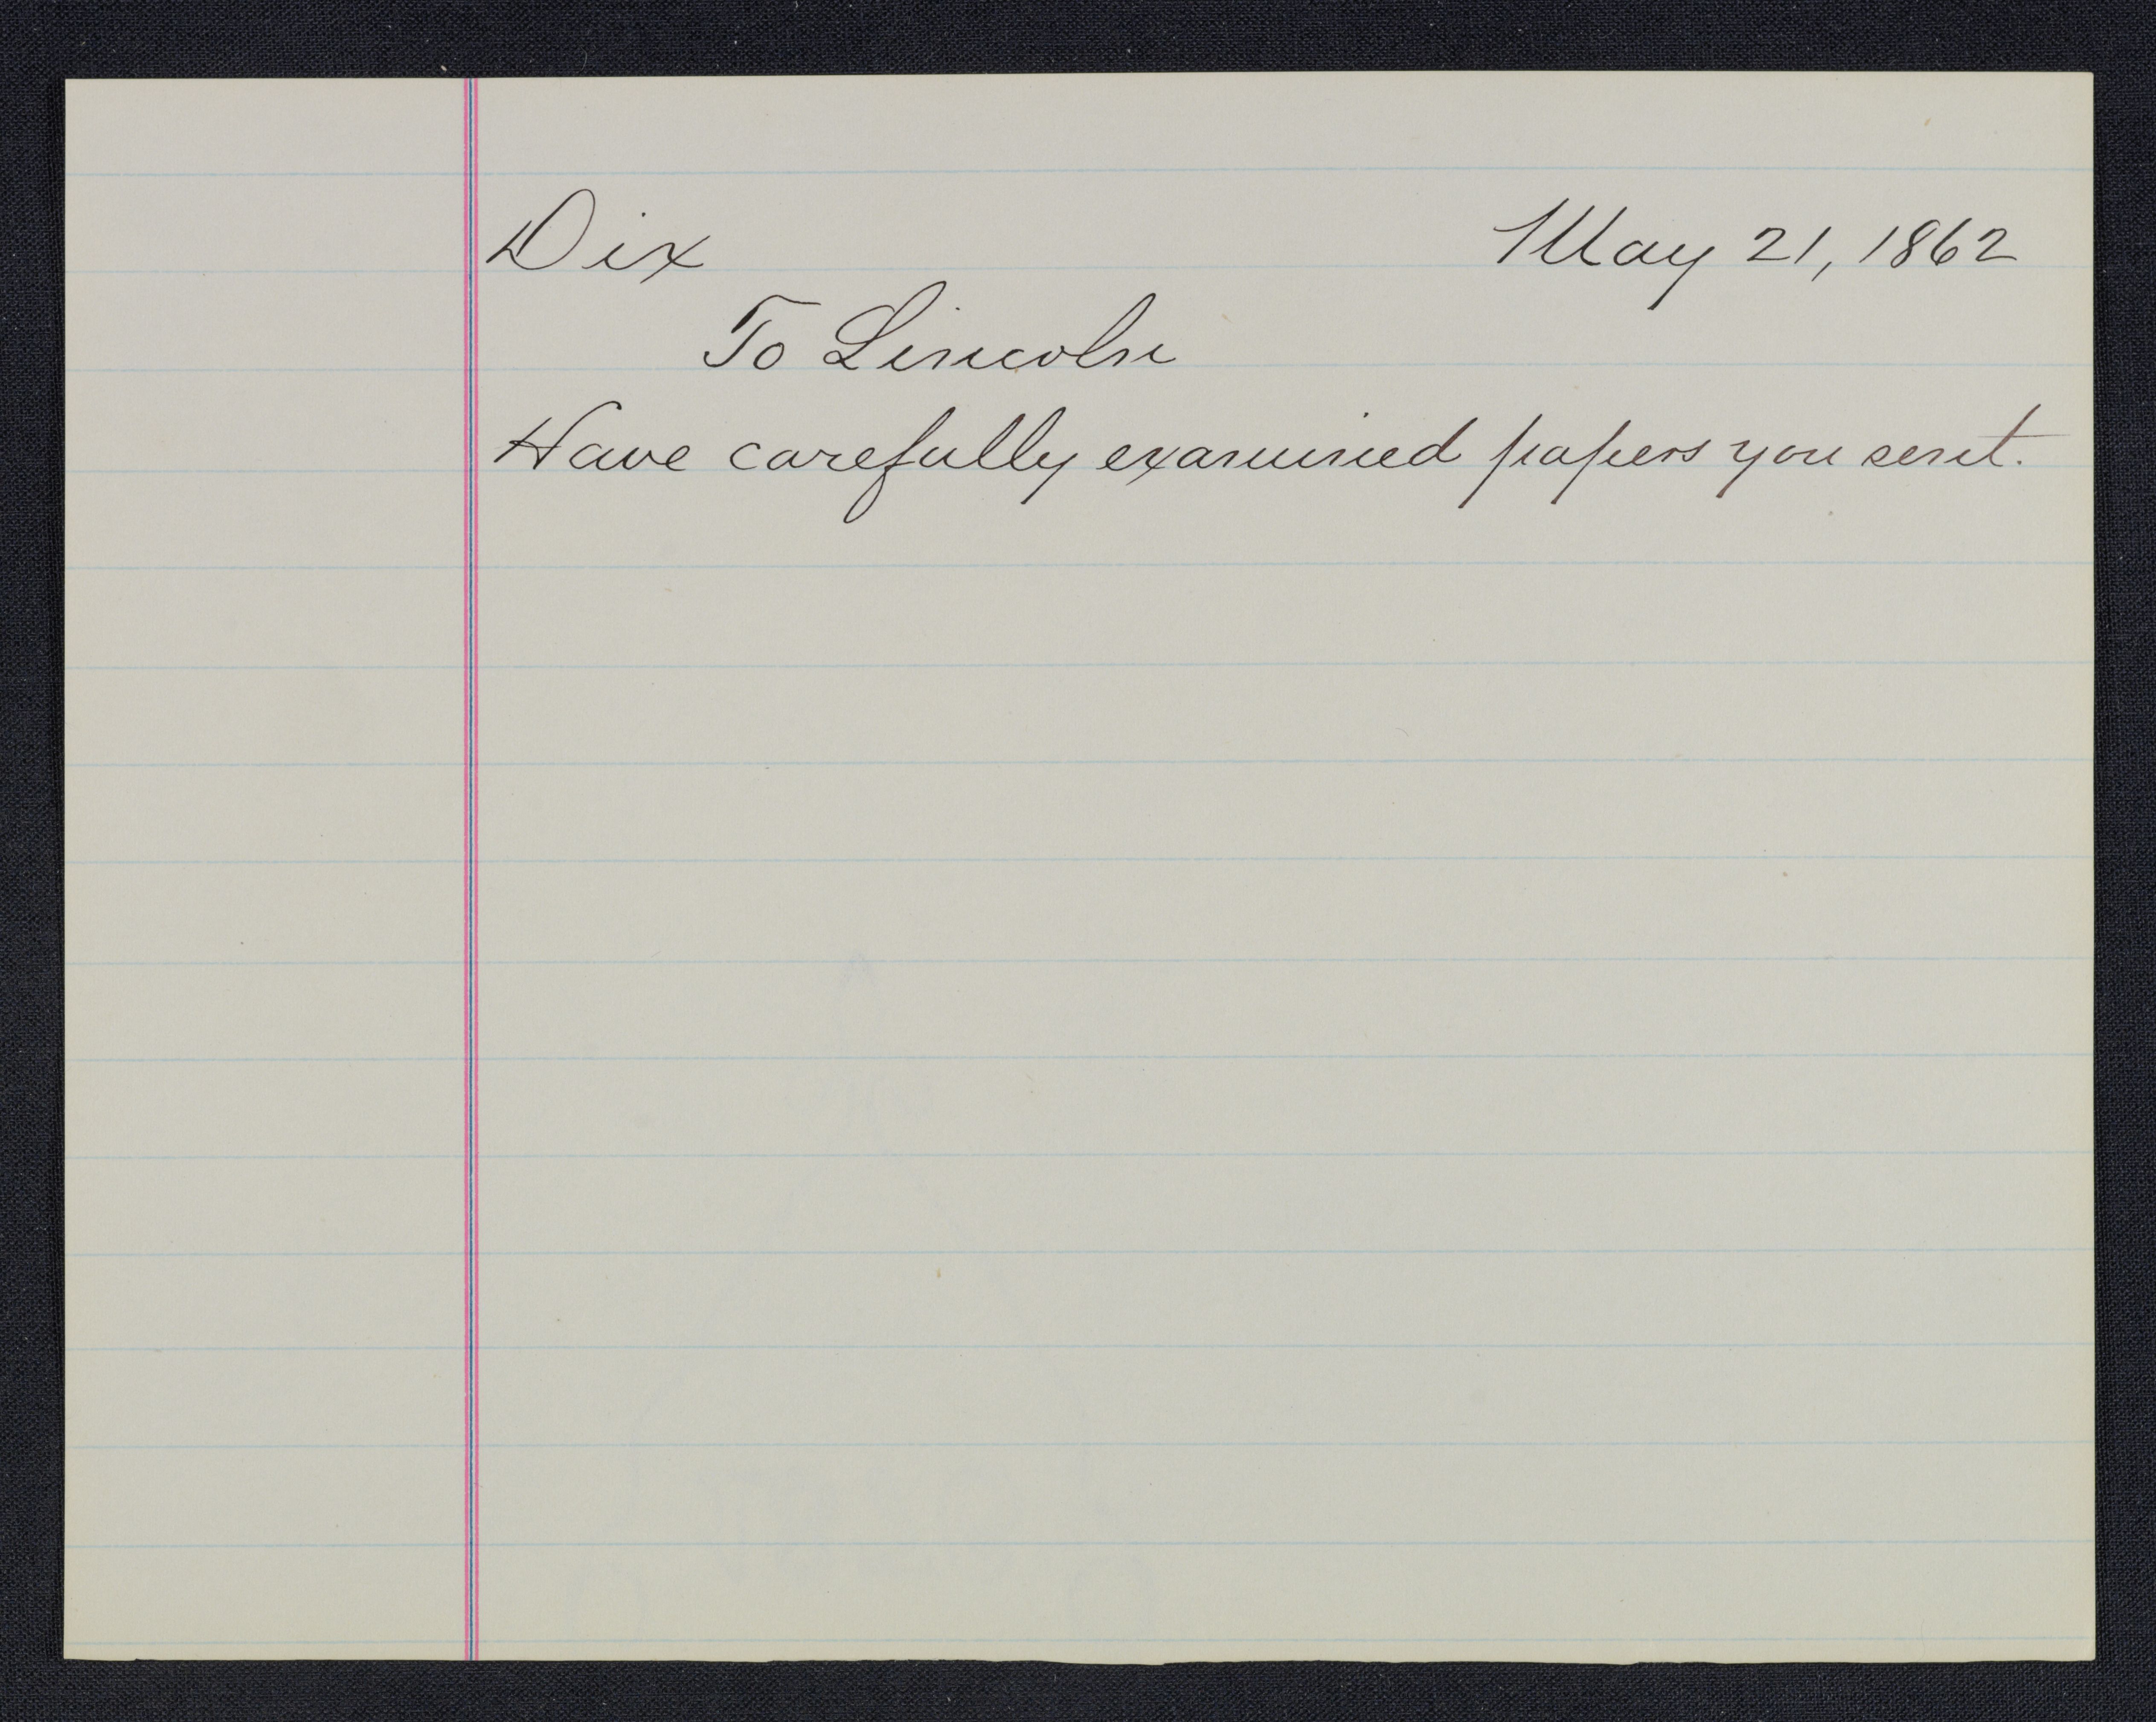 Dix May 21, 1862
To Lincoln
Have carefully examined papers you sent.